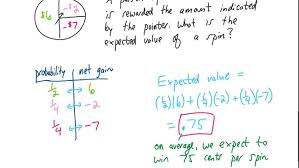 is rewarded the amount indicated
by the pointer. What is the
expected value of a spin?
$6
-$2
-$7
probability net gain
1/2 ↔ 6
1/4 ↔ -2
1/4 ↔ -7
Expected value =
(1/2)(6) + (1/4)(-2) + (1/4)(-7)
= .75
on average, we expect to
win 75 cents per spin